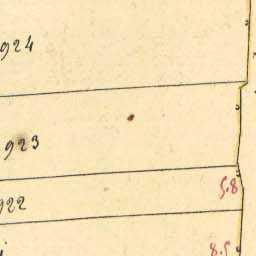 924
923
922
5.8
8.5